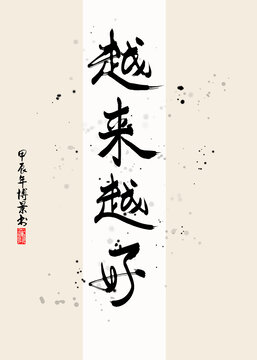 越来越好
甲辰年博景书